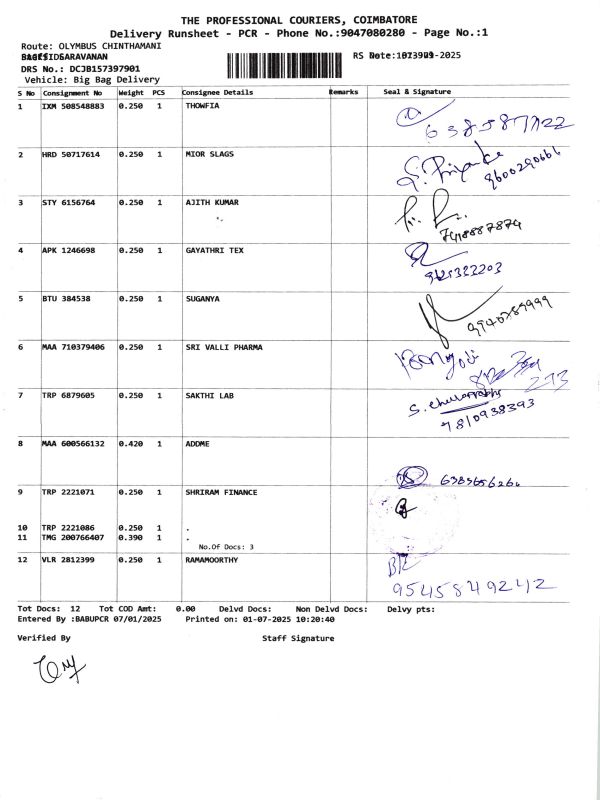 THE PROFESSIONAL COURIERS, COIMBATORE
Delivery Runsheet - PCR - Phone No.:9047080280 - Page No.:1
Route: OLYMBUS CHINTHAMANI
SARAVANAN
RS No
-2025
DRS No.: DCJB157397901
Vehicle: Big Bag Delivery
S No Consignment No Weight PCS Consignee Details Remarks Seal & Signature
1 IXM 508548883 0.250 1 THOWFIA
2 HRD 50717614 0.250 1 MIOR SLAGS
S. Priyanka
9600290666
3 STY 6156764 0.250 1 AJITH KUMAR
7418887874
4 APK 1246698 0.250 1 GAYATHRI TEX
5 BTU 384538 0.250 1 SUGANYA
6 MAA 710379406 0.250 1 SRI VALLI PHARMA
273
7 TRP 6879605 0.250 1 SAKTHI LAB
7810938393
8 MAA 600566132 0.420 1 ADDME
9 TRP 2221071 0.250 1 SHRIRAM FINANCE
10 TRP 2221086 0.250 1 .
11 TMG 200766407 0.390 1 .
No.Of Docs: 3
12 VLR 2812399 0.250 1 RAMAMOORTHY
9545849242
Tot Docs: 12 Tot COD Amt: 0.00 Delvd Docs: Non Delvd Docs: Delvy pts:
Entered By :BABUPCR 07/01/2025 Printed on: 01-07-2025 10:20:40
Verified By Staff Signature